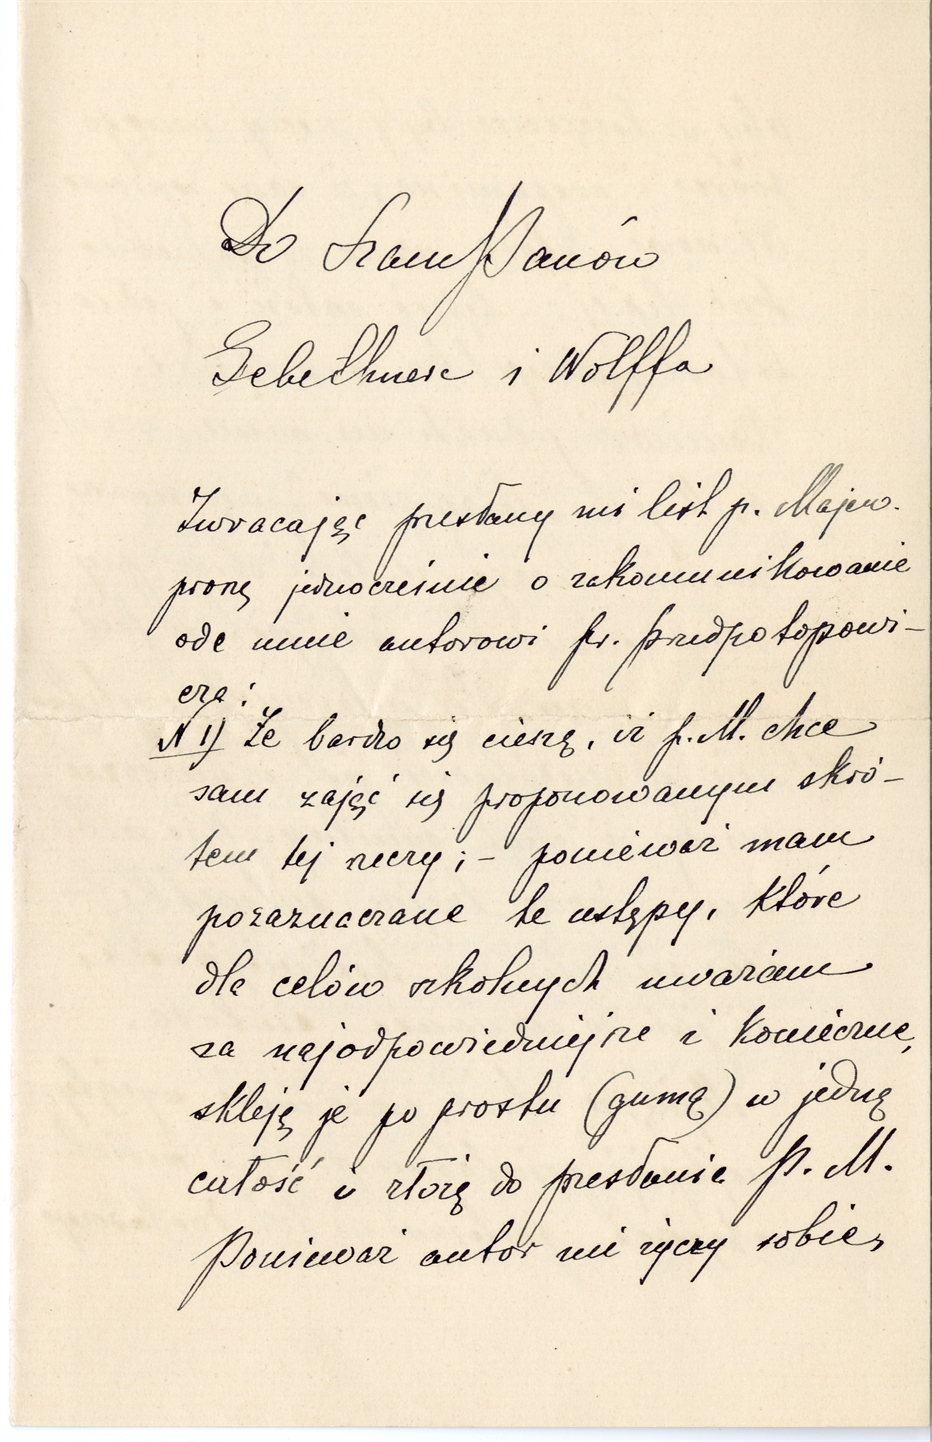 Do Szan Panów
Gebethnera i Wolffa
Zwracając przesłany mi list p. Majew.
proszę jednocześnie o zakomunikowanie
ode mnie autorowi Dr. Przedpotopowi-
cza:
N 1) Że bardzo się cieszę, iż p. M. chce
sam zająć się proponowanym skró-
tem tej rzeczy; - ponieważ mam
pozaznaczane te ustępy, które
dla celów szkolnych uważam
za najodpowiedniejsze i konieczne,
skleję je po prostu (gumą) w jedną
całość i złożę do przesłania P. M.
Ponieważ autor nie życzy sobie,